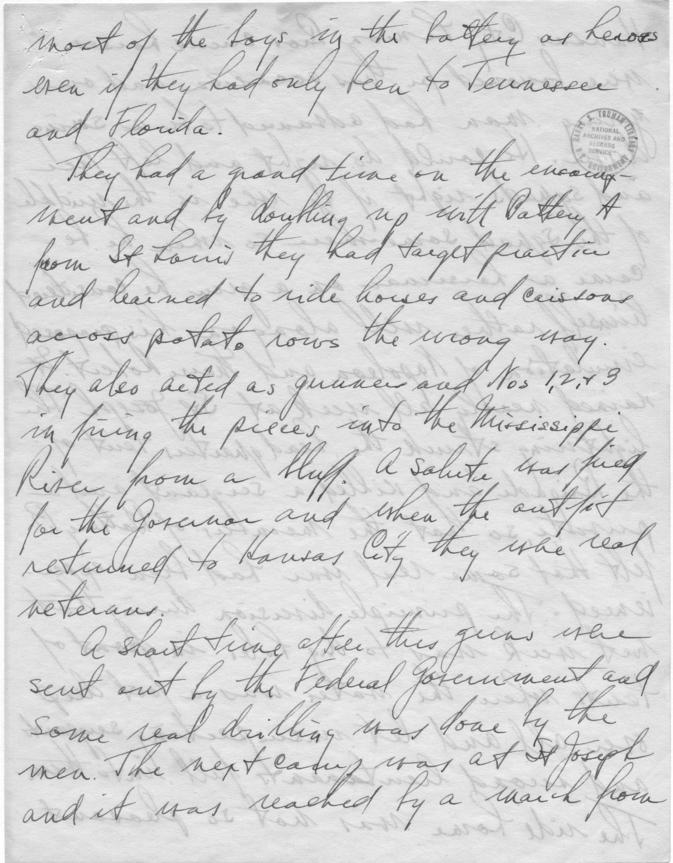 most of the boys in the battery as heroes
even if they had only been to Tennessee
and Florida.
HARRY S. TRUMAN LIBRARY
NATIONAL
ARCHIVES AND
RECORDS
SERVICE
They had a grand time on the encamp-
ment and by doubling up with Battery A
from St Louis they had target practice
and learned to ride horses and caissons
across potato rows the wrong way.
They also acted as gunner and Nos 1, 2, & 3
in firing the pieces into the Mississippi
River from a bluff. A salute was fired
for the Governor and when the outfit
returned to Kansas City they were real
veterans.
A short time after this guns were
sent out by the Federal Government and
some real drilling was done by the
men. The next camp was at St Joseph
and it was reached by a march from